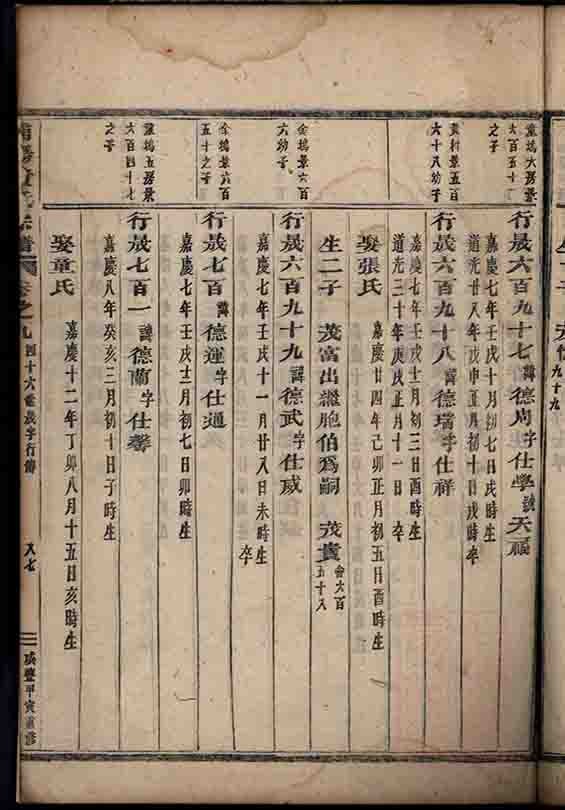 葉塢大房景
六百五十一
之子
行晟六百九十七諱德周字仕學號天福
嘉慶七年壬戌十月初七日戌時生
道光廿八年戊申正月初十日戌時卒
景五百
六十八幼子
行晟六百九十八諱德瑞字仕祥
嘉慶七年壬戌十二月初三日酉時生
道光三十年庚戌正月十一日 卒
娶張氏
嘉慶廿四年己卯正月初五日酉時生
生二子 茂富出繼胞伯爲嗣 茂貴
五十八
金塢景六百
六幼子
行晟六百九十九諱德武字仕威
嘉慶七年壬戌十一月廿八日未時生
卒
金塢景六百
五十之子
行晟七百諱德運字仕通
嘉慶七年壬戌十二月初七日卯時生
葉塢五房景
六百四十七
之子
行晟七百一諱德蘭字仕馨
嘉慶八年癸亥三月初十日子時生
娶童氏
嘉慶十二年丁卯八月十五日亥時生
宗譜
卷之九
四十六世晟字行傳
八七
咸豐甲寅重修
九十九